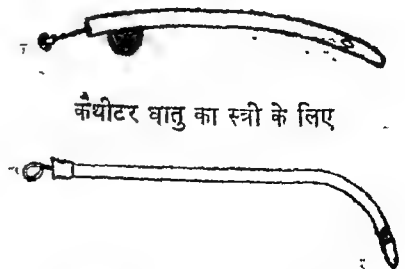 कैथीटर धातु का स्त्री के लिए